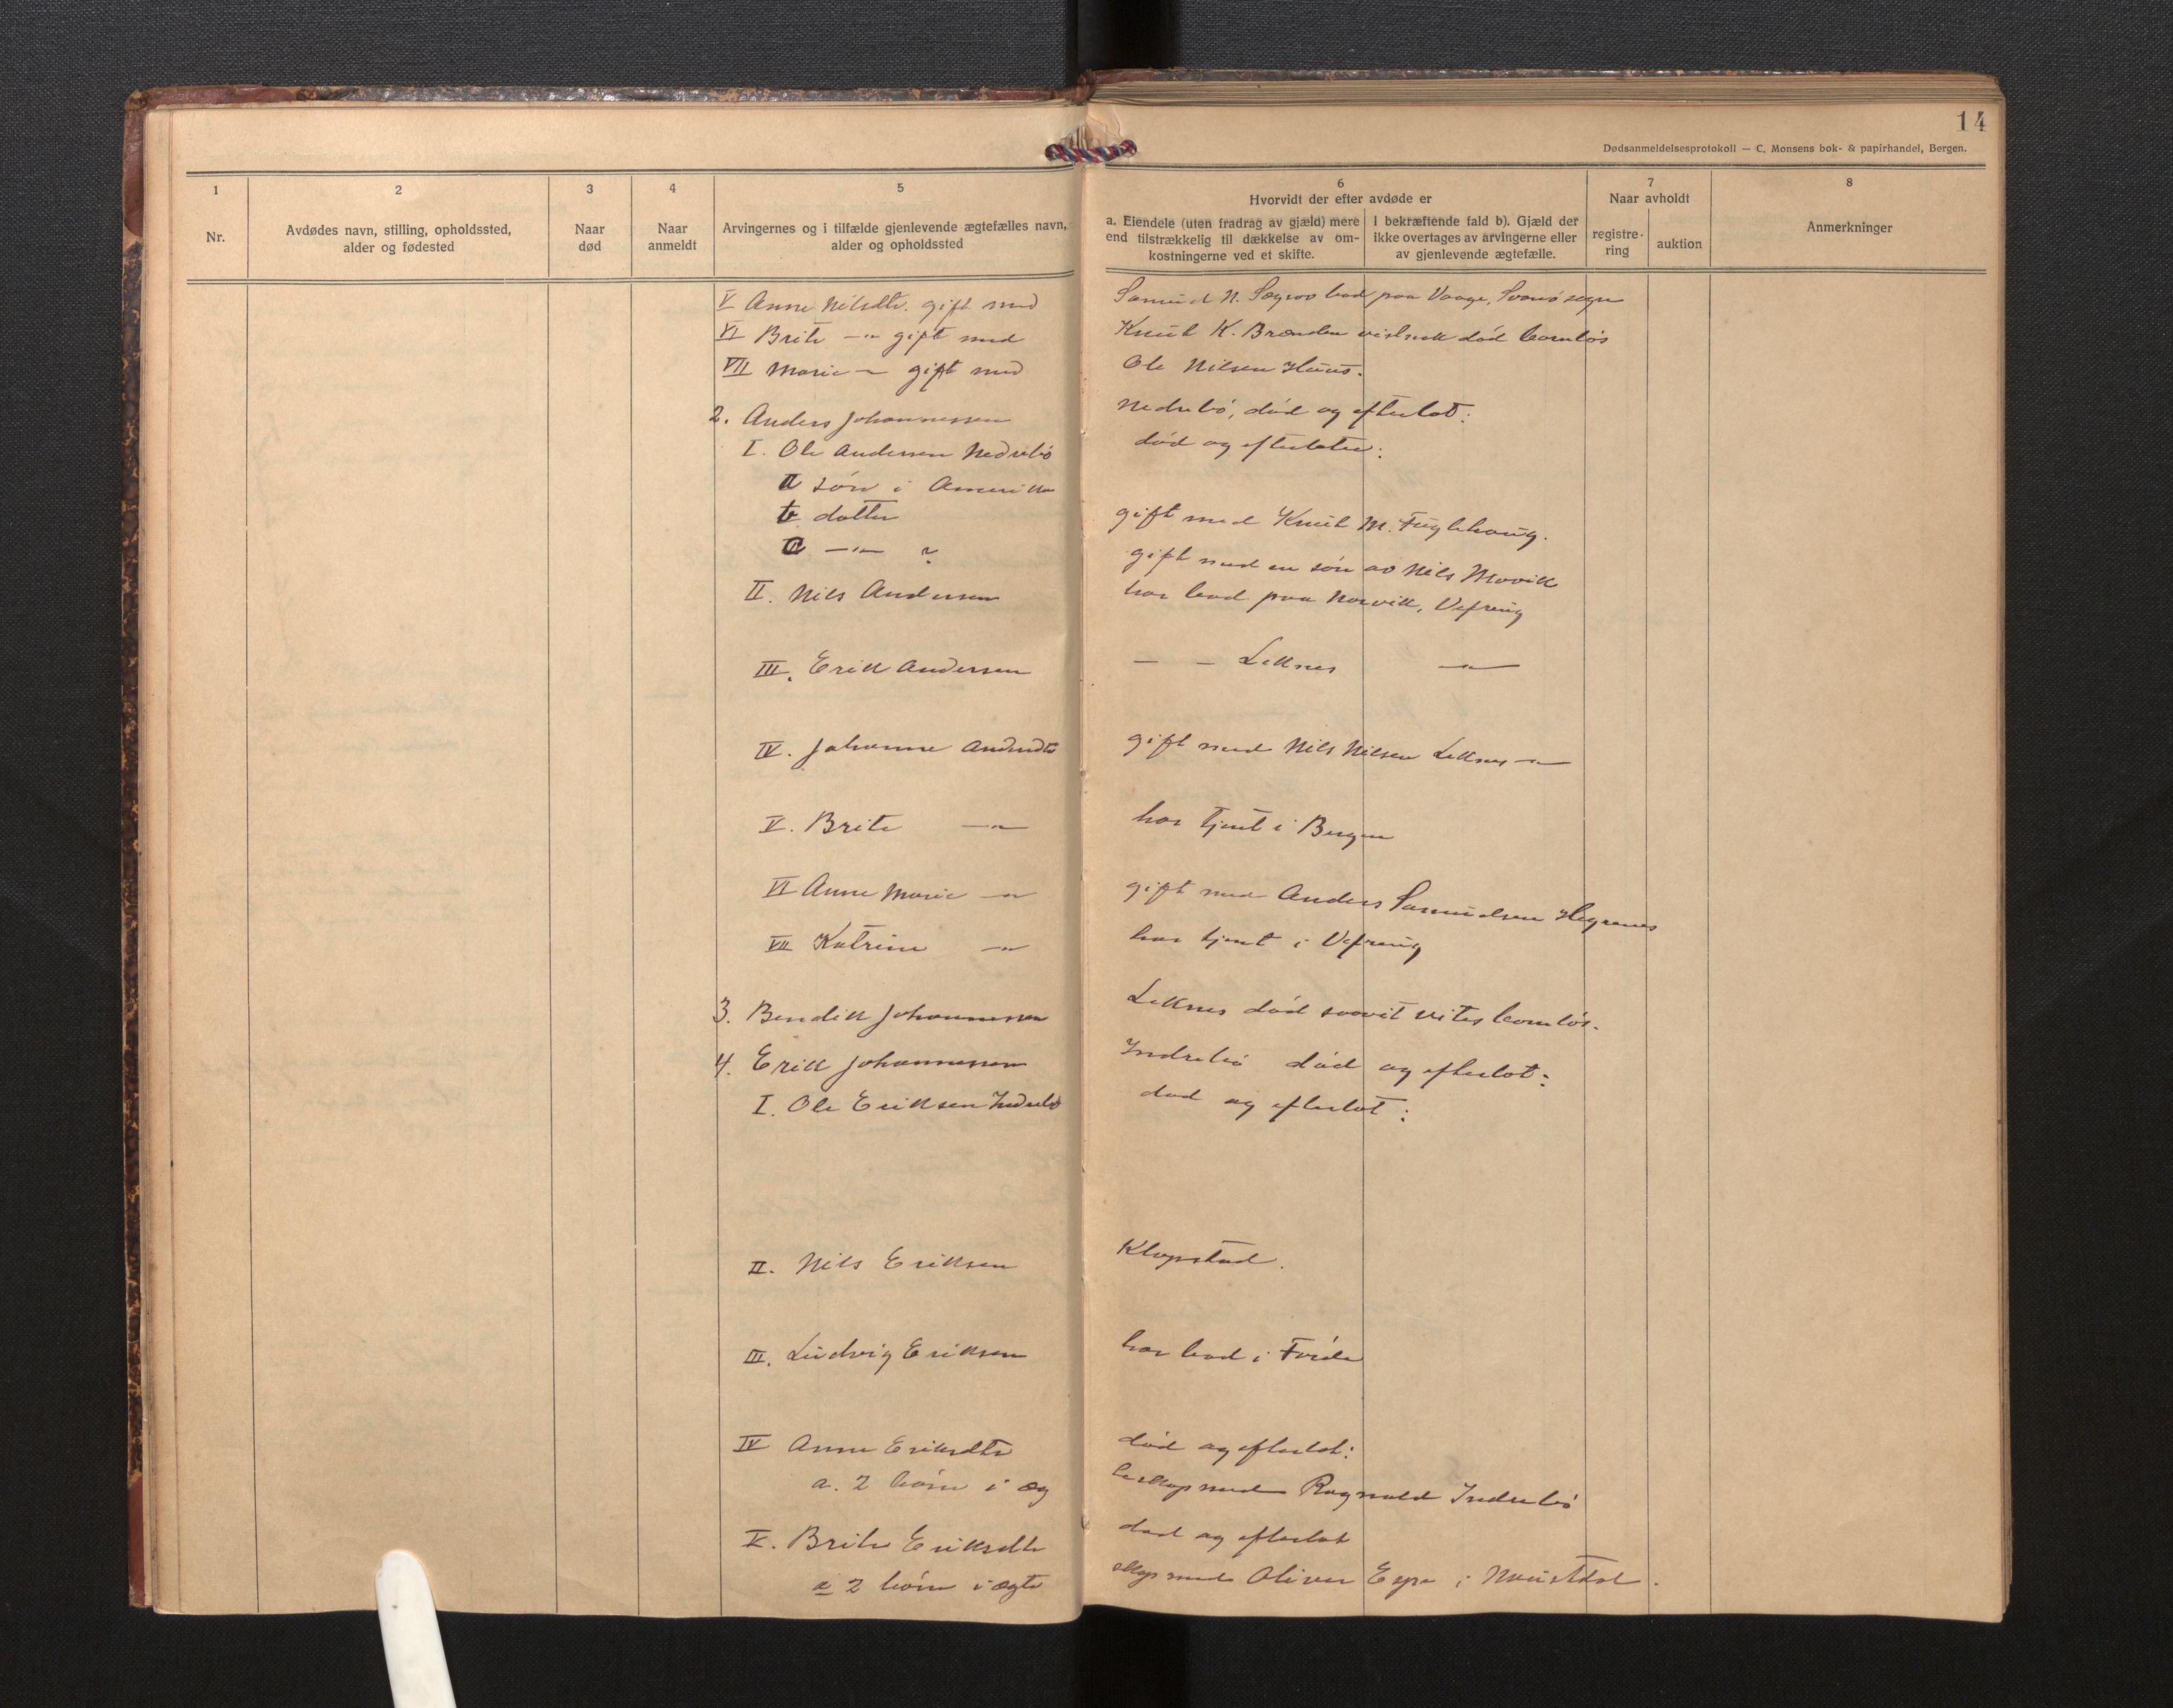 14
Dødsanmeldelsesprotokoll — C. Monsens bok- & papirhandel, Bergen.
1 2 3 4 5 6 7 8
Nr.
Avdødes navn, stilling, opholdssted,
alder og fødested
Naar
død
Naar
anmeldt
Arvingernes og i tilfælde gjenlevende ægtefælles navn,
alder og opholdssted
Hvorvidt der efter avdøde er
a. Eiendele (uten fradrag av gjæld) mere
end tilstrækkelig til dækkelse av om-
kostningerne ved et skifte.
I bekræftende fald b). Gjæld der
ikke overtages av arvingerne eller
av gjenlevende ægtefælle.
Naar avholdt
registre-
ring
auktion
Anmerkninger
V Anne Nilsdtr. gift med Samuel N. Sægrov boed paa Vaage, Svanø sogn
VI Brite —"— gift med Knut K. Brænden vistnok død barnløs
VII Marie —"— gift med Ole Nilsen Haus.
2. Anders Johannessen Nedrebø, død og efterlot:
I. Ole Andersen Nedrebø død og efterlater:
a søn i Amerika
b datter gift med Knut M. Fuglehaug.
c —"— ? gift med en søn av Nils Movik
II. Nils Andersen har boed paa Norvik, Vefring
III. Erik Andersen — — Leknes —"—
IV. Johanne Andersdtr gift med Nils Nilsen Leknes —"—
V. Brite —"— har tjent i Bergen
VI Anne Marie —"— gift med Anders Samuelsen Hegrenes
VII Katrine —"— har tjent i Vefring
3. Bendik Johannessen Leknes død saavit vites barnløs.
4. Erik Johannessen Indrebø død og efterlot:
I. Ole Eriksen Indrebø død og efterlot:
II. Nils Eriksen Klopstad.
III. Ludvig Eriksen har boed i Førde
IV Anne Eriksdtr død og efterlot:
a. 2 børn i æg teskap med Ragnvald Indrebø
V. Brite Eriksdtr død og efterlot
a 2 børn i ægte skap med Oliver Espe i Naustdal.